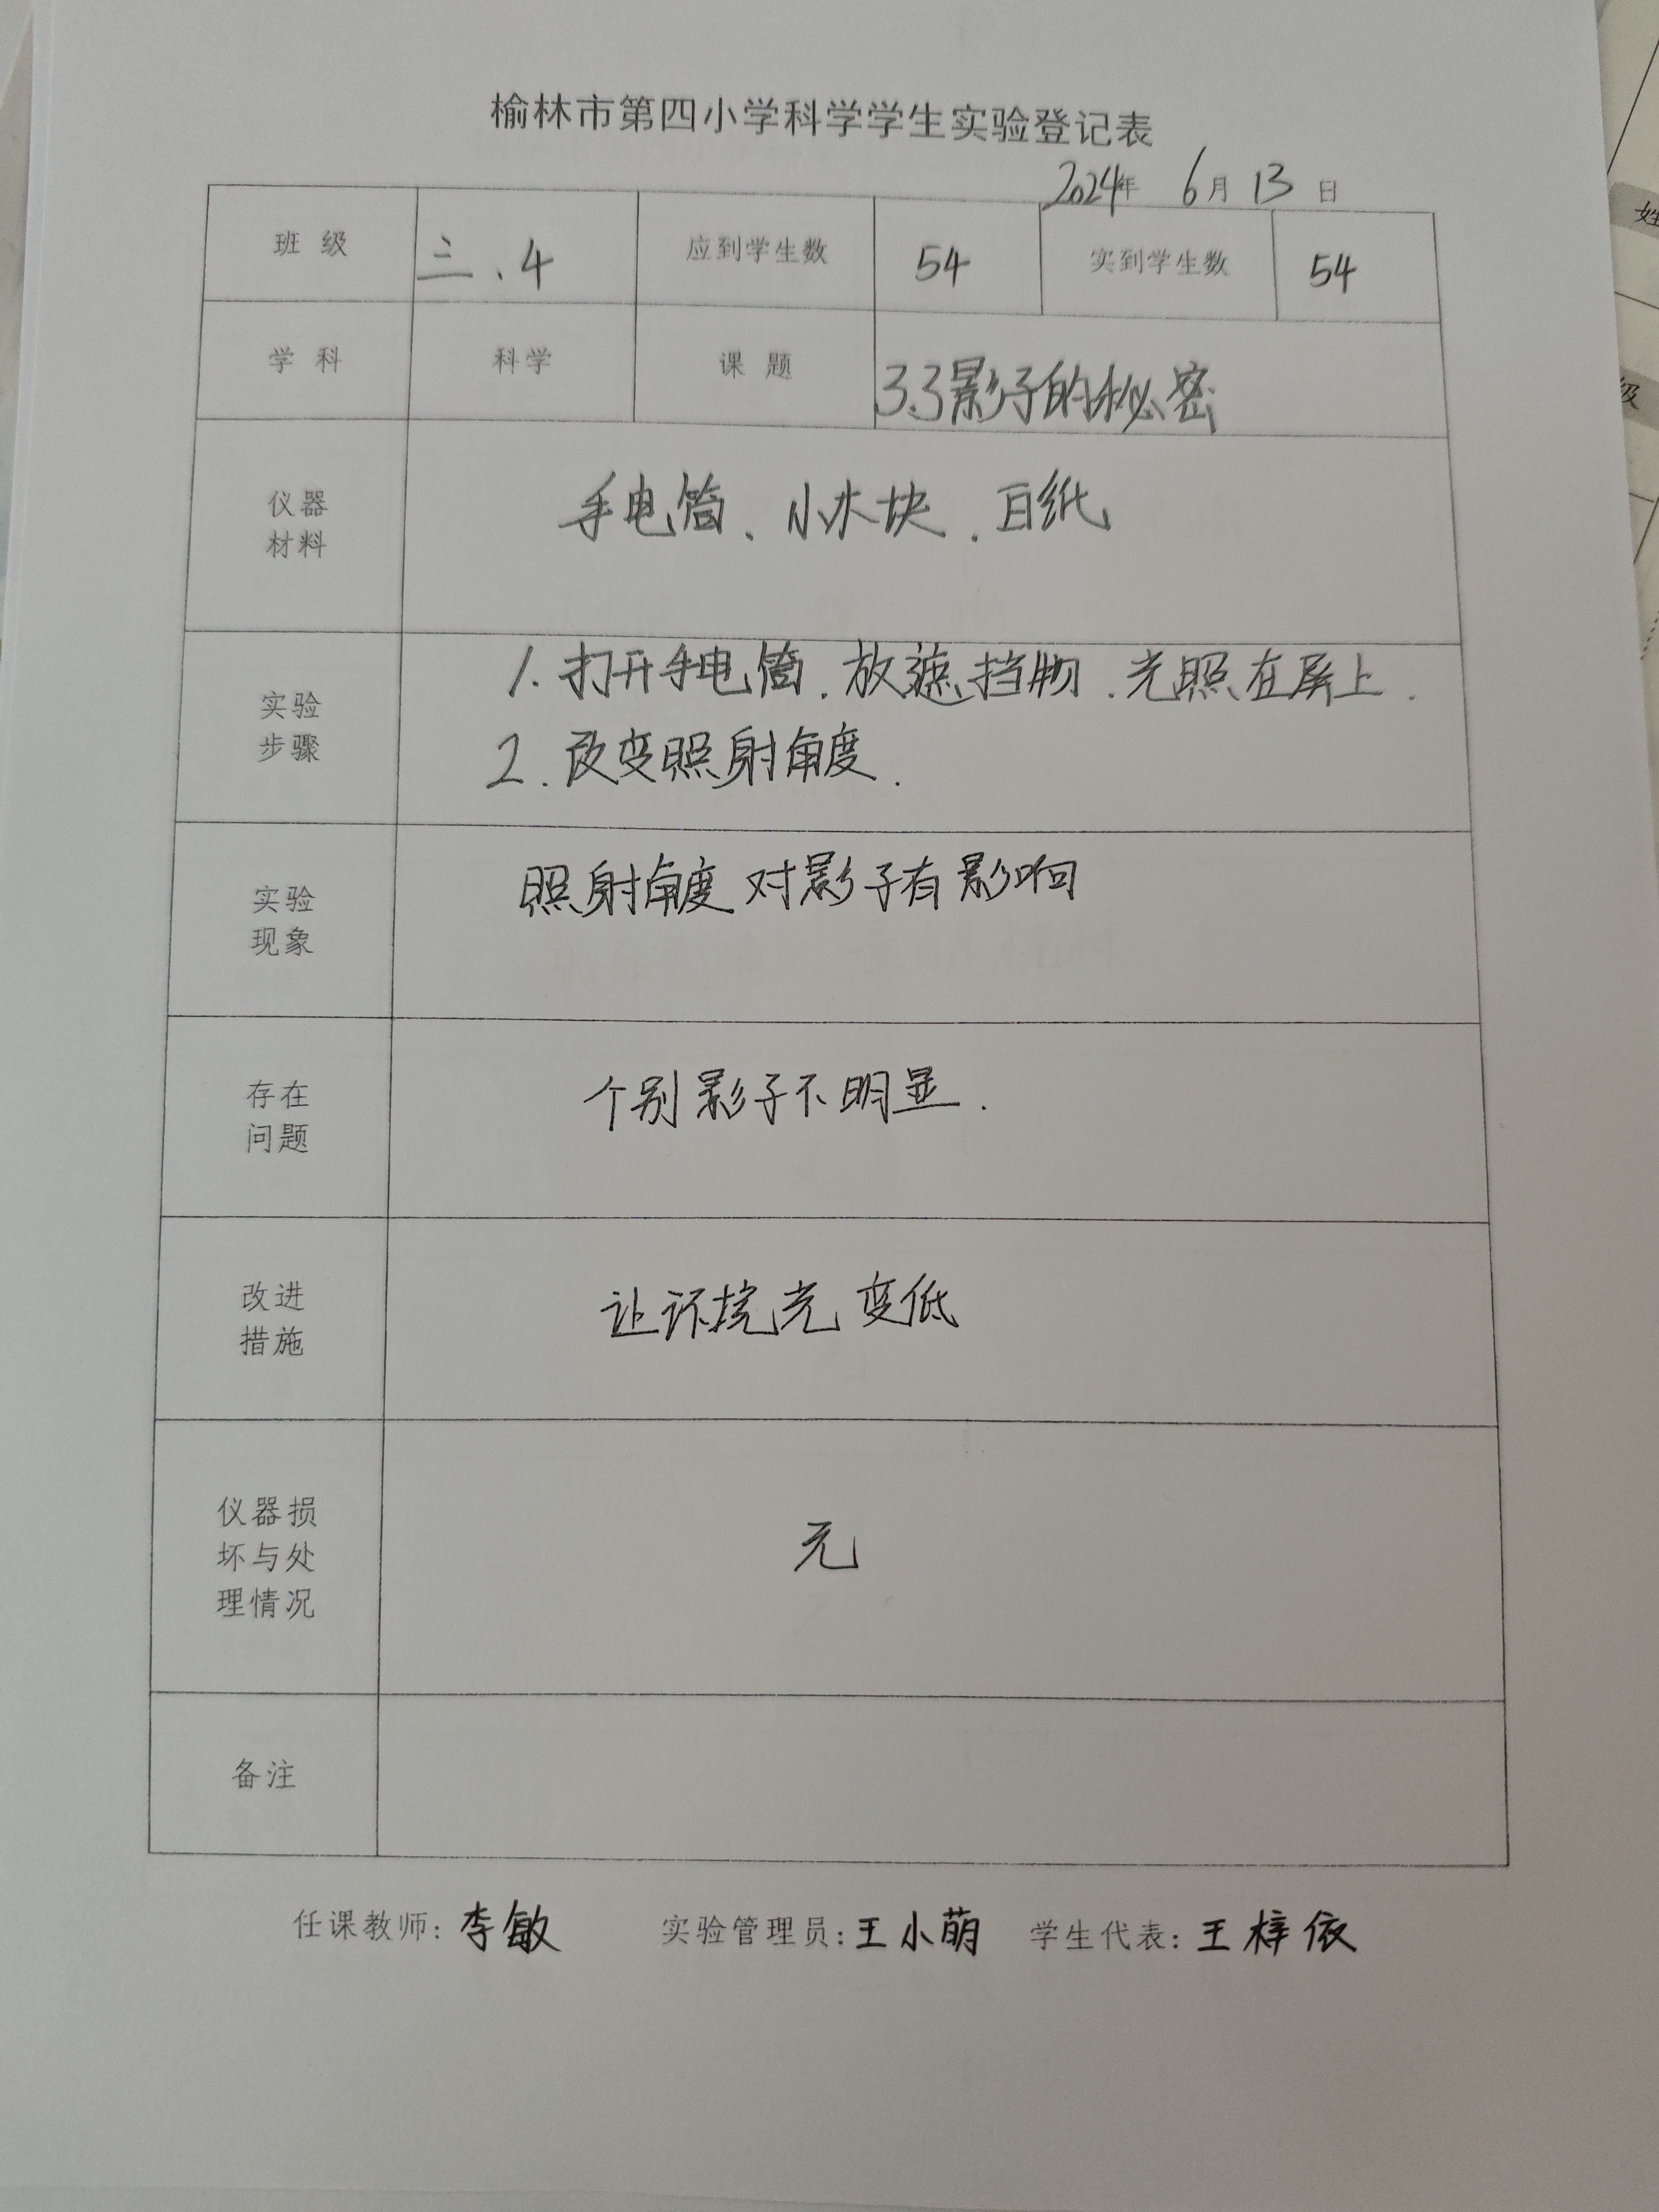 榆林市第四小学科学学生实验登记表
2024年 6月 13日
班 级 三.4 应到学生数 54 实到学生数 54
学 科 科学 课 题 3.3影子的秘密
仪器
材料
手电筒、小木块.白纸
实验
步骤
1.打开手电筒.放遮挡物.光照在屏上.
2.改变照射角度.
实验
现象
照射角度对影子有影响
存在
问题
个别影子不明显.
改进
措施
让环境光变低
仪器损
坏与处
理情况
无
备注
任课教师:李敏 实验管理员:王小萌 学生代表:王梓依
姓
级